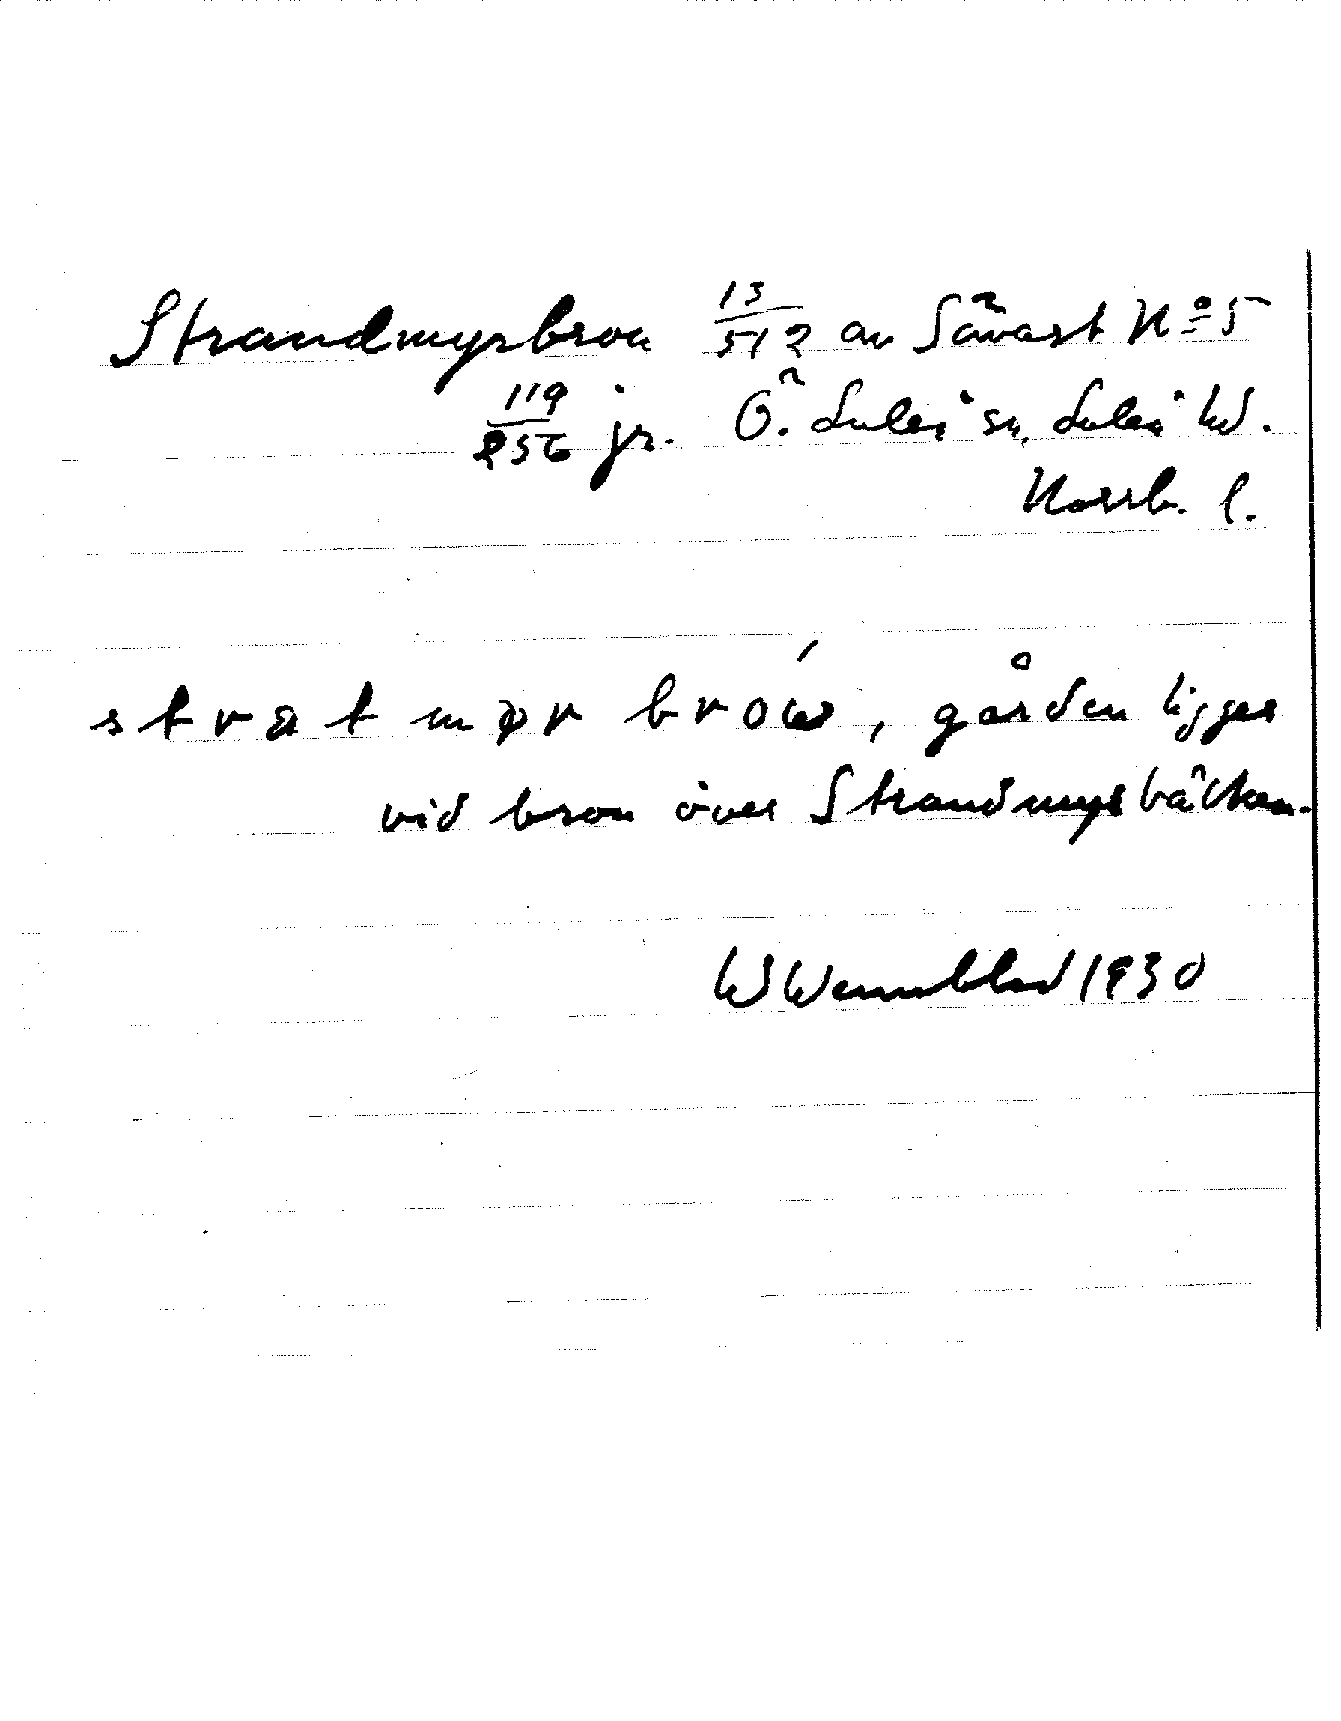 Strandmyrbron 13/512 av Sävast Nº 5
119/256 jr. Ö. Luleå sn, Luleå tld.
Norrb. l.
strat mør bróω, gården ligger
vid bron över Strandmyrbäcken.
W Wennblad 1930